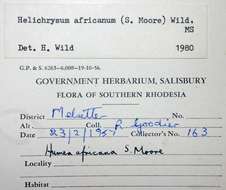 Helichrysum africanum (S. Moore) Wild.
MS
Det. H. Wild 1980
G.P. & S. 6263—6,000—19-10-56.
GOVERNMENT HERBARIUM, SALISBURY
FLORA OF SOUTHERN RHODESIA
District Melsetter No.
Alt. Coll. R. Goodier
Date 23/2/1957 Collector's No. 163
Humea africana S. Moore
Locality
Habitat